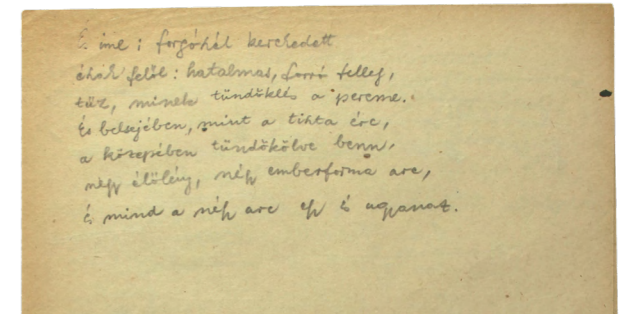 És íme: forgószél kerekedett
észak felől: hatalmas, forró felleg,
tűz, minek tündöklés a pereme.
És belsejében, mint a tiszta érc,
a közepében tündökölve benn,
négy élőlény, négy emberforma arc,
És mind a négy arc egy és ugyanaz.